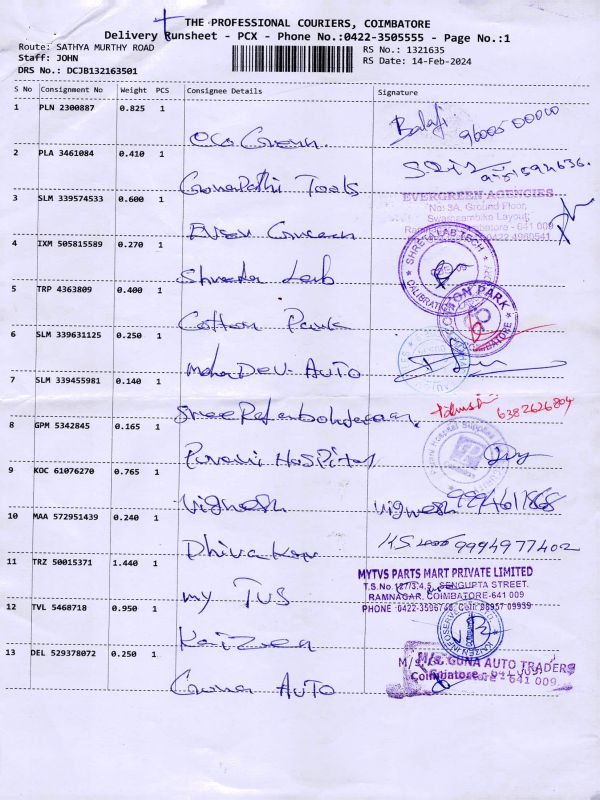 THE PROFESSIONAL COURIERS, COIMBATORE
Delivery Runsheet - PCX - Phone No.:0422-3505555 - Page No.:1
Route: SATHYA MURTHY ROAD
RS No.: 1321635
Staff: JOHN
RS Date: 14-Feb-2024
DRS No.: DCJB132163501
S No Consignment No Weight PCS Consignee Details Signature
1 PLN 2300887 0.825 1
Balaji
2 PLA 3461084 0.410 1
Ganapathi Tools
3 SLM 339574533 0.600 1
EVERGREEN AGENCIES
No: 3A, Ground Floor,
Swarnambika Layout,
4 IXM 505815589 0.270 1
SHREYA LAB TECH
CALIBRATION
5 TRP 4363809 0.400 1
Cotton Park
COTTON PARK
COIMBATORE
6 SLM 339631125 0.250 1
MahaDev AUTO
7 SLM 339455981 0.140 1
6382626804
8 GPM 5342845 0.165 1
Hospital
9 KOC 61076270 0.765 1
Vignesh Vignesh
10 MAA 572951439 0.240 1
Dhivakar 9994977402
11 TRZ 50015371 1.440 1
my TVS
MYTVS PARTS MART PRIVATE LIMITED
T.S.No.127/3,4,5, SENGUPTA STREET.
RAMNAGAR, COIMBATORE-641 009
12 TVL 5468718 0.950 1
Kaizen
13 DEL 529378072 0.250 1
Guna AUTO
GUNA AUTO TRADERS
Coimbatore - 641 009